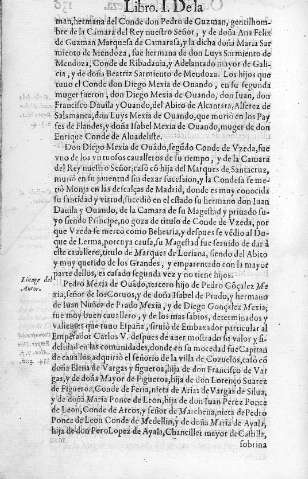 Libro. I. De la
man, hermana del Conde don Pedro de Guzman, gentilhom-
bre de la Camara del Rey nuestro Señor, y de doña Ana Felix
de Guzman Marquesa de Camarasa, y la dicha doña Maria Sar
miento de Mendoza, fue hermana de don Luys Sarmiento de
Mendoza, Conde de Ribadauia, y Adelantado mayor de Gali-
cia, y de doña Beatriz Sarmiento de Mendoza. Los hijos que
tuuo el Conde don Diego Mexia de Ouando, en su segunda
muger fueron, don Diego Mexia de Ouando, don Iuan, don
Francisco Dauila y Ouando, del Abito de Alcantara, Alferez de
Salamanca, don Luys Mexia de Ouando, que murio en los Pay
ses de Flandes, y doña Isabel Mexia de Ouando, muger de don
Enrique Conde de Aluadeliste.
Don Diego Mexia de Ouádo, segúdo Conde de Vzeda, fue
vno de los virtuosos caualleros de su tiempo, y de la Camara
del Rey nuestro Señor; casó có hija del Marques de Santacruz,
murio en su juuentud sin dexar sucession, y la Condesa se me-
tio Monja en las descalças de Madrid, donde es muy conocida
su santidad y virtud, sucedio en el estado su hermano don Iuan
Dauila y Ouando, de la Camara de su Magestad y priuado su-
yo siendo Principe, no goza de titulo de Conde de Vzeda, por
que Vzeda se mercó como Behetria, y despues se védio al Du-
que de Lerma, por cuya causa, su Magestad fue seruido de dar á
este cauallero, titulo de Marques de Loriana, siendo del Abito
y muy querido de los Grandes, y emparentado con la mayor
parte dellos, es casado segunda vez y no tiene hijos.
Tiempo del
Autor.
Pedro Mexia de Ouádo, tercero hijo de Pedro Góçalez Me
xia, señor de los Coruos, y de doña Isabel de Prado, y hermano
de Iuan Nuñez de Prado Mexia, y de Diego Gonçalez Mexia,
fue muy buen cauallero, y de los mas sabios, determinados y
valientes que tuuo España, siruió de Embaxador particular al
Emperador Carlos V. despues de auer mostrado su valor y fi-
delidad en las comunidades, donde en su mocedad fue Capitá
de cauallos, adquirió el señorio de la villa de Cozuelos, casó có
doña Elena de Vargas y figueroa, hija de don Francisco de Var
gas, y de doña Mayor de Figueroa, hija de don Lorenço Suarez
de Figueroa, Conde de Feria, nieta de Arias de Vargas de Silua,
y de doña Maria Ponce de Leon, hija de don Iuan Perez Ponce
de Leon, Conde de Arcos, y señor de Marchena, nieta de Pedro
Ponce de Leon Conde de Medellin, y de doña Maria de Ayala,
hija de don Pero Lopez de Ayala, Chanciller mayor de Castilla,
sobrina